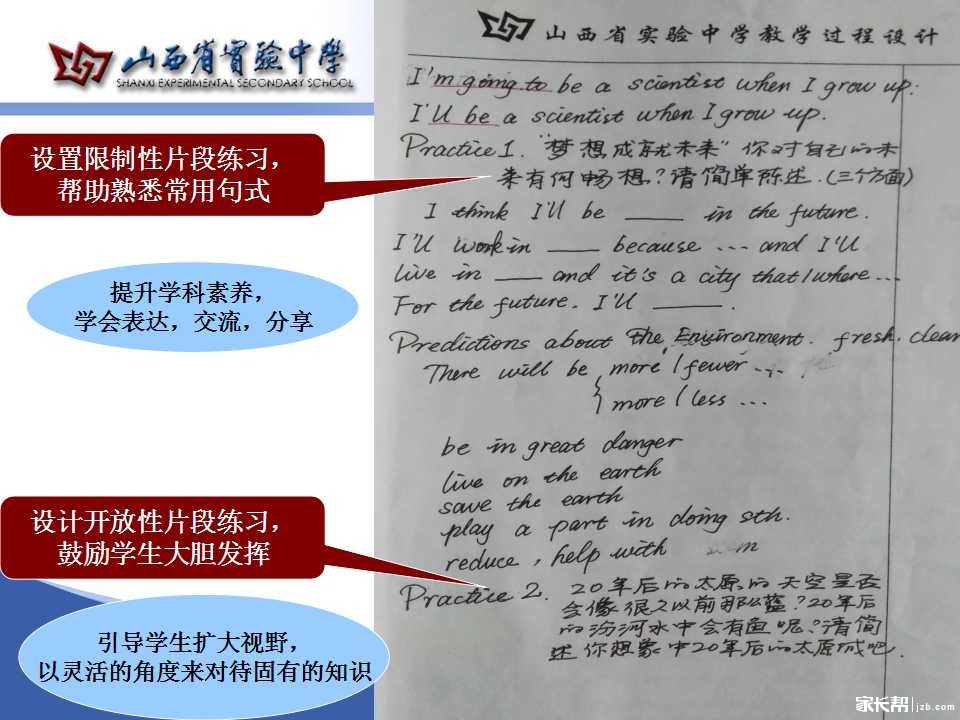 山西省实验中学
SHANXI EXPERIMENTAL SECONDARY SCHOOL
设置限制性片段练习，
帮助熟悉常用句式
提升学科素养，
学会表达，交流，分享
设计开放性片段练习，
鼓励学生大胆发挥
引导学生扩大视野，
以灵活的角度来对待固有的知识
山西省实验中学教学过程设计
I'm going to be a scientist when I grow up.
I'll be a scientist when I grow up.
Practice 1. "梦想成就未来" 你对自己的未
来有何畅想？请简单陈述.(三个方面)
I think I'll be ____ in the future.
I'll work in ____ because ... and I'll
live in ____ and it's a city that/where...
For the future. I'll ____.
Predictions about The Environment. fresh. clean
There will be more / fewer ...
more / less ...
be in great danger
live on the earth
save the earth
play a part in doing sth.
reduce, help with
Practice 2. 20年后的太原的天空是否
会像很久以前那么蓝？20年后
的汾河水中会有鱼呢？请简
述你想象中20年后的太原城吧.
家长帮 jzb.com